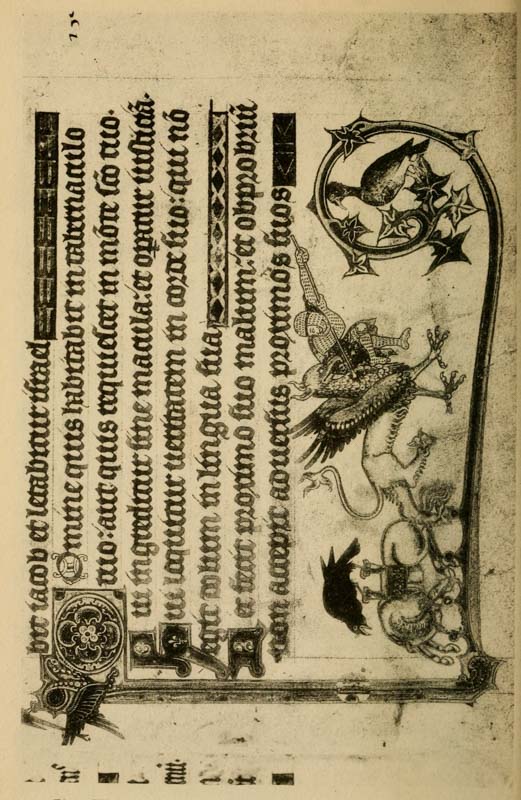 bit iacob et letabitur israel
Domine quis habitabit in tabernaculo
tuo: aut quis requiescet in mōte sc̄o tuo.
Qui ingreditur sine macula: et op̄atur iusticiā.
Qui loquitur ueritatem in corde suo: qui nō
egit dolum in lingua sua
Nec fecit proximo suo malum: et obprobriū
non accepit aduersus proximos suos